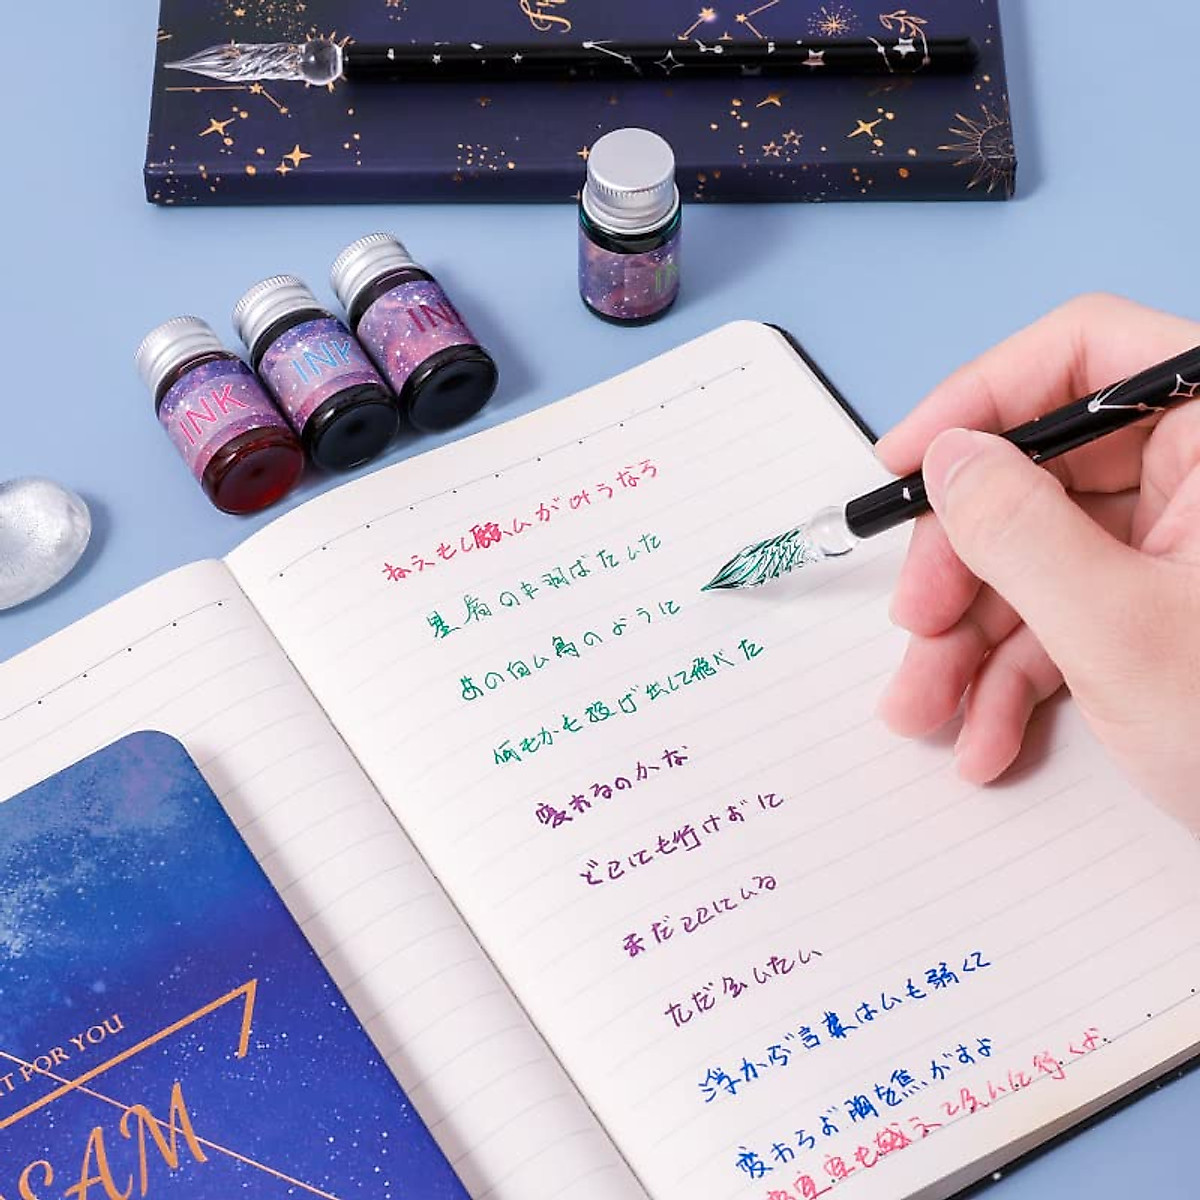 INK
INK
INK
ねえもし願いが叶うなら
星屑の中羽ばたいた
あの白い鳥のように
何もかも投げ出して飛べた
変わるのかな
どこにも行けずに
まだここにいる
ただ会いたい
浮かぶ言葉はいも弱くて
変わらず胸を焦がすよ
FOR YOU
EAM